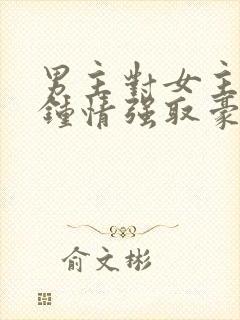 男主對女主
鍾情强取豪
俞文彬